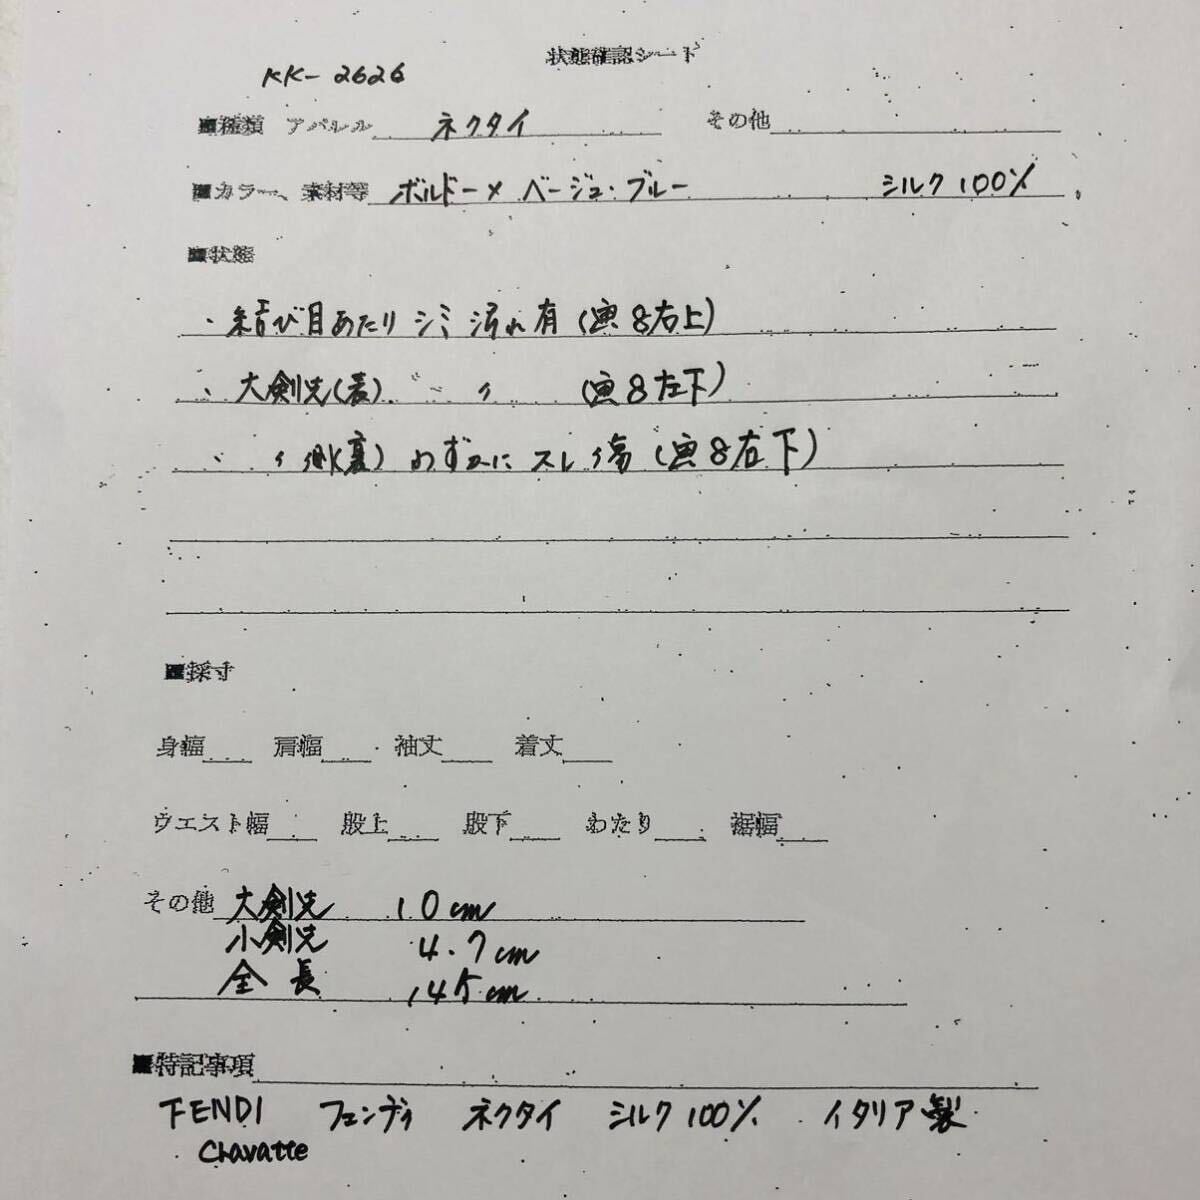 状態確認シート
KK-2626
■種類 アパレル ネクタイ その他
■カラー、素材等 ボルドー×ベージュ・ブルー シルク100%
■状態
・結び目あたりシミ汚れ有(画8右上)
・大剣先(表) 〃 〃 (画8左下)
・〃側(裏)わずかにスレ傷(画8右下)
■採寸
身幅 肩幅 袖丈 着丈
ウエスト幅 股上 股下 わたり 裾幅
その他 大剣先 10cm
小剣先 4.7cm
全長 145cm
■特記事項
FENDI フェンディ ネクタイ シルク100% イタリア製
Chavatte